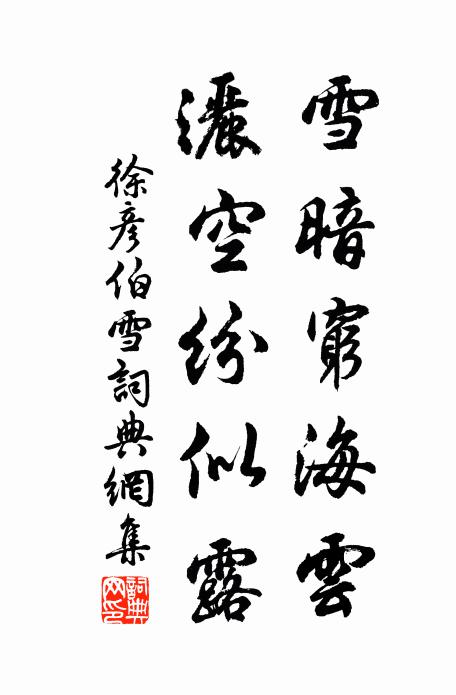 雪暗窮海雲
灑空紛似露
徐彥伯雪詞典網集
詞典網印